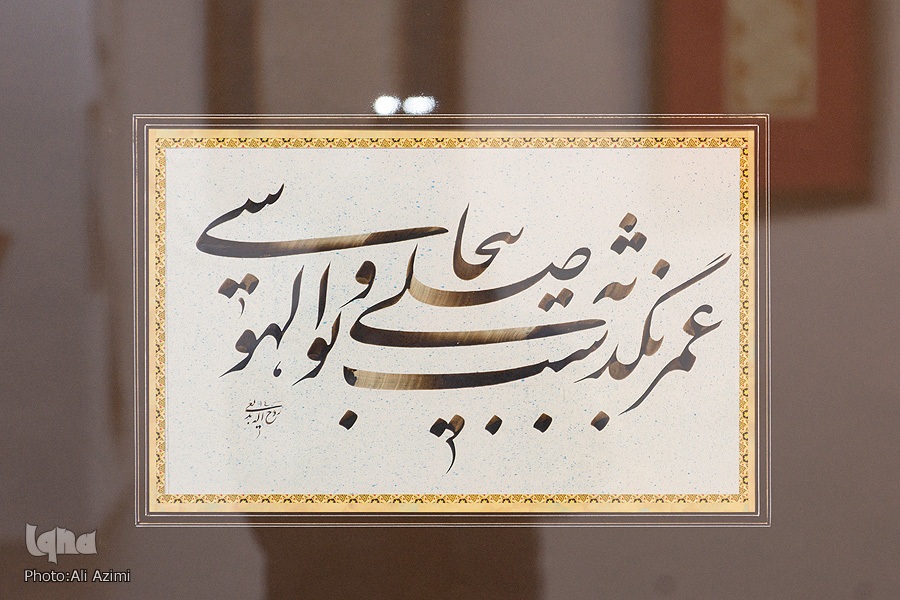 عمر بگذشت به بیحاصلی و بوالهوسی
روح الله
Iqna
Photo:Ali Azimi